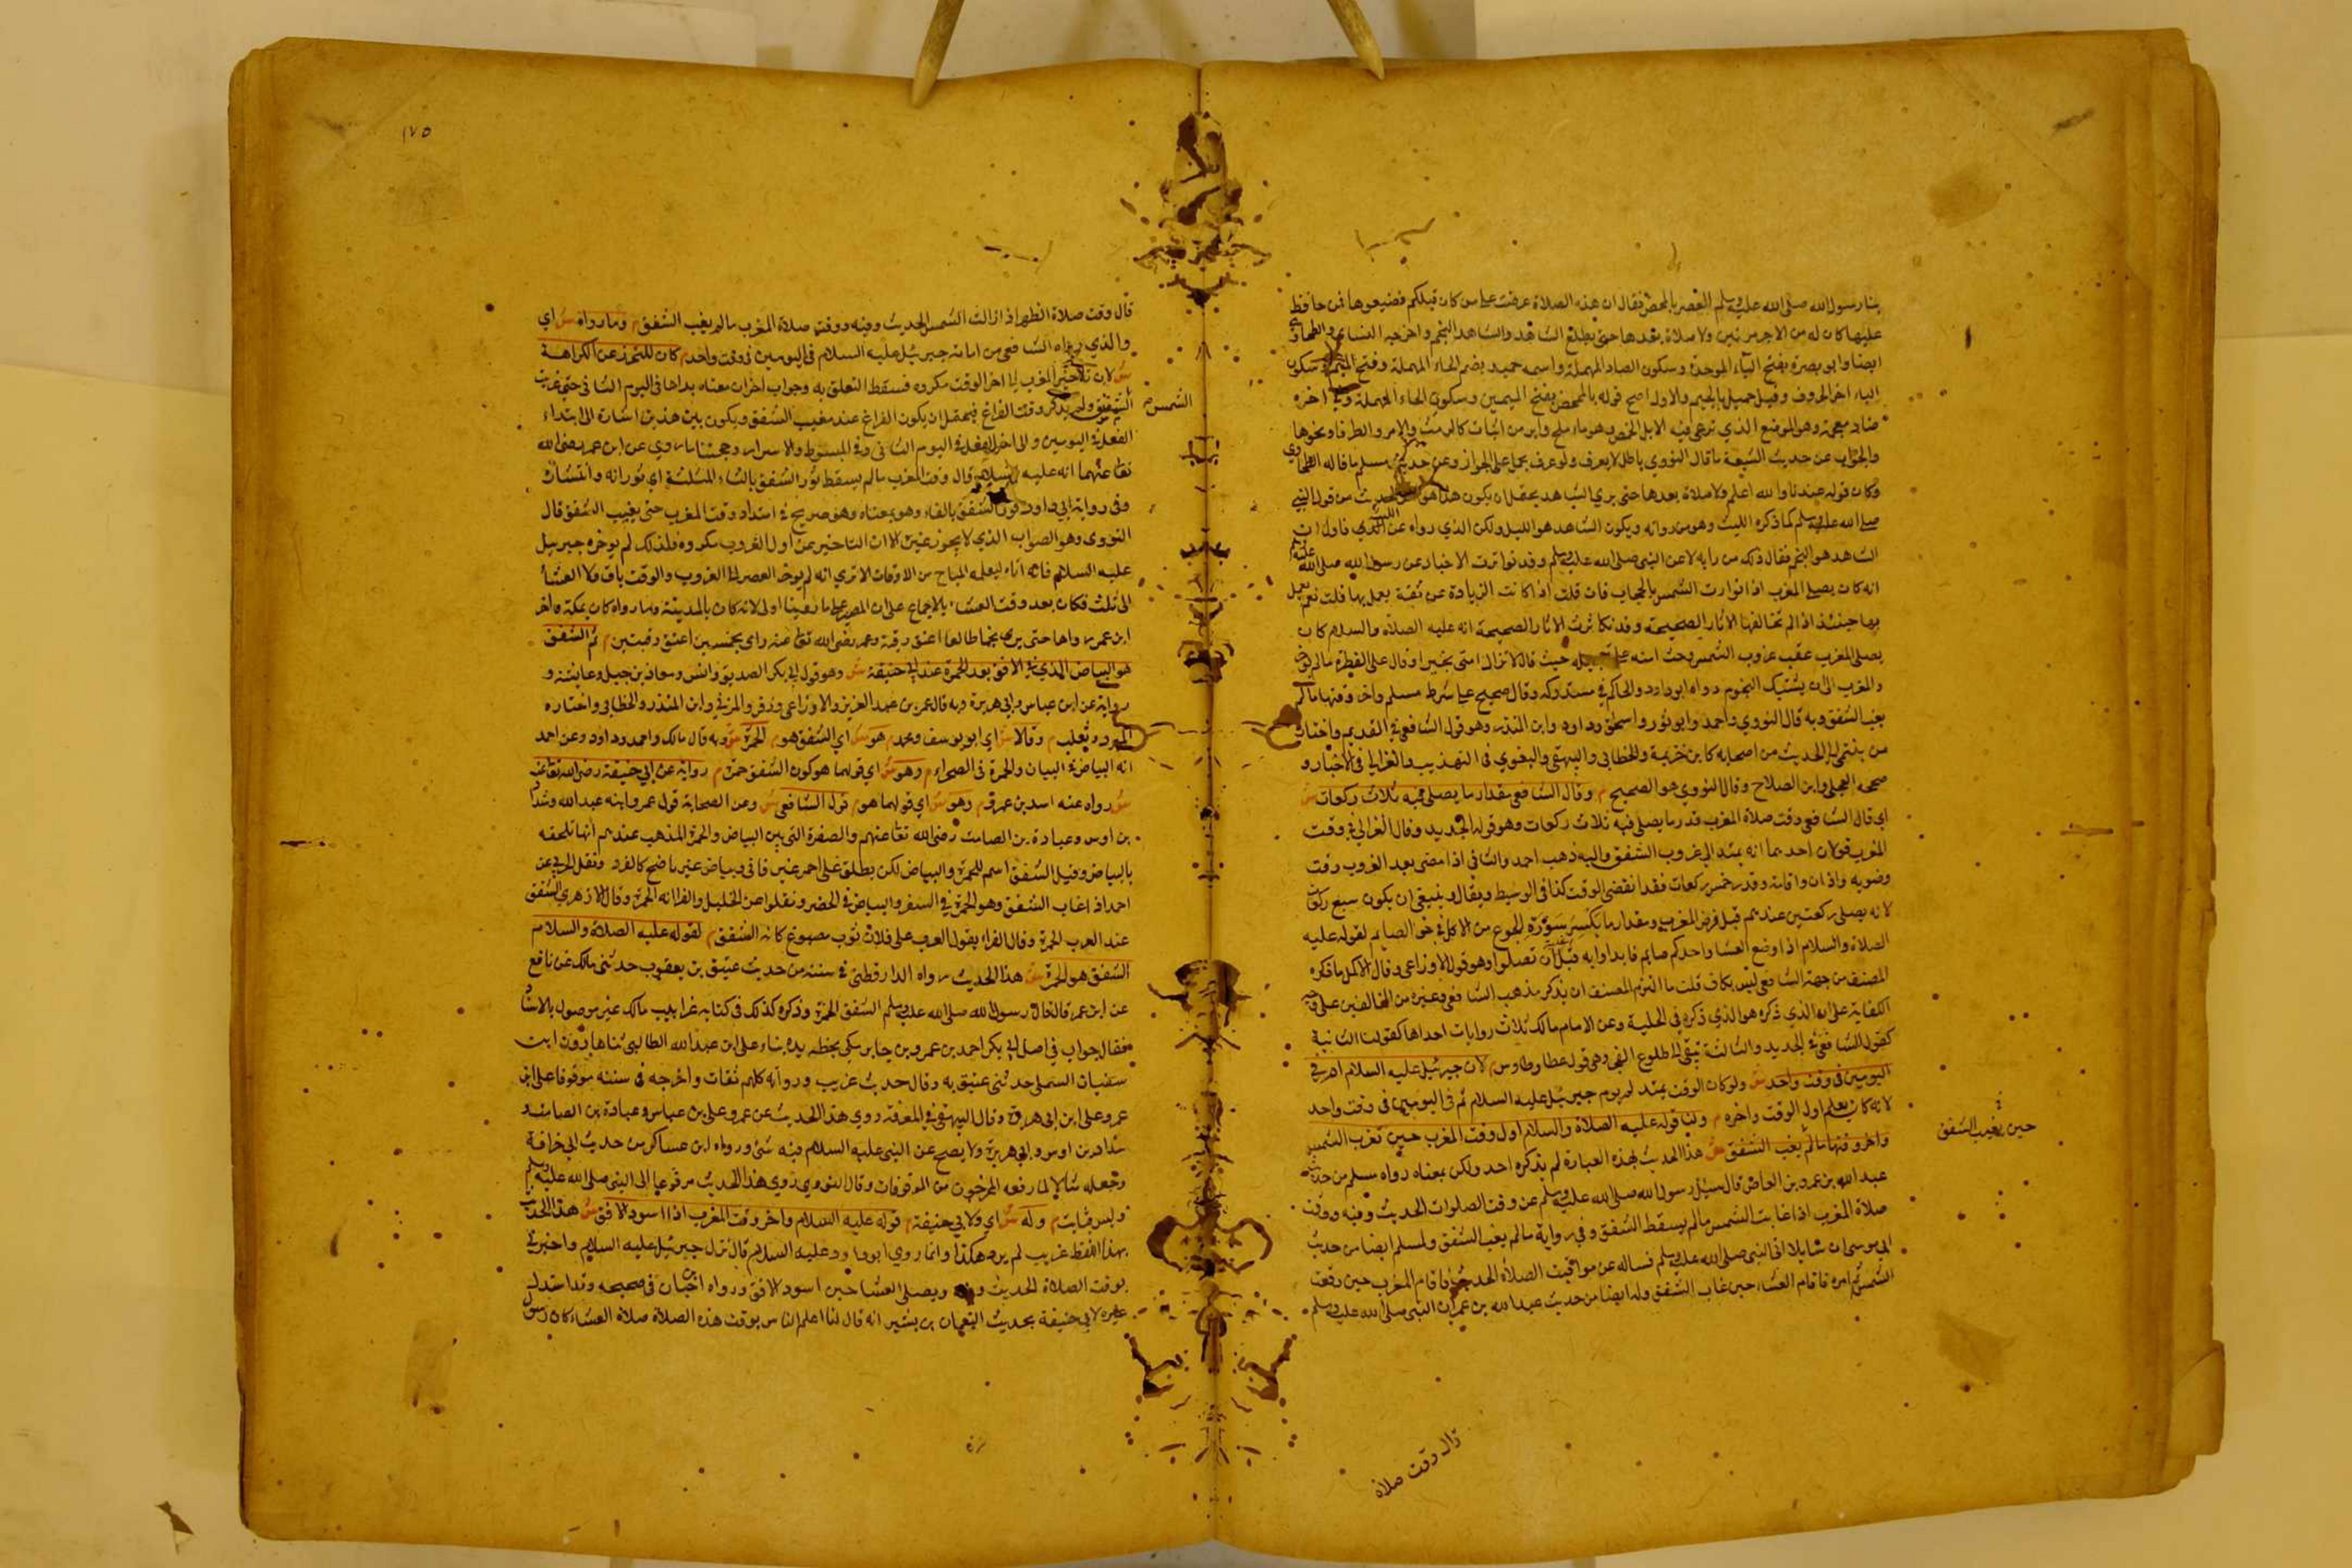 بنا رسول الله صلى الله عليه وسلم العصر بالمخمص فقال ان هذه الصلاة عرضت على من كان قبلكم فضيعوها فمن حافظ
عليها كان له من الاجر مرتين ولا صلاة بعدها حتى يطلع الشاهد والشاهد النجم واخرجه النسائي والطحاوي
ايضا وابو بصرة بفتح الباء الموحدة وسكون الصاد المهملة واسمه حميد بضم الحاء المهملة وفتح الميم وسكون
الياء اخر الحروف وقيل جميل بالجيم والاول اصح قوله بالمخمص بفتح الميمين وسكون الخاء المعجمة وفي اخره
ضاد معجمة وهو الموضع الذي ترعى فيه الابل الحمض وهو ماء ملح وامر من النبات كالرمث والطرفا ونحوها
والجواب عن حديث الشيعة ما قال النووي باطل لا يعرف ولو عرف يحمل على الجواز وعن حديث مسلم ما قاله الطحاوي
وكان قوله عندنا والله اعلم ولا صلاة بعدها حتى يري الشاهد يحتمل ان يكون هذا هو الحديث من قول النبي
صلى الله عليه وسلم كما ذكره الليث وهو من رواته ويكون الشاهد هو الليل ولكن الذي رواه عن الليث تاول ان
الشاهد هو النجم فقال ذلك من رايه لا عن النبي صلى الله عليه وسلم وقد تواترت الاخبار عن رسول الله صلى الله عليه وسلم
انه كان يصلى المغرب اذا توارت الشمس بالحجاب فان قلت اذا كانت الزيادة عن ثقة يعمل بها قلت نعم يعمل
بها حينئذ اذا لم تخالفها الاثار الصحيحة وقد تكاثرت الاثار الصحيحة انه عليه الصلاة والسلام كان
يصلى المغرب عقيب غروب الشمس وحث امته على تعجيله حيث قال لا تزال امتى بخير او قال على الفطرة ما لم يؤخروا
المغرب الى ان يشتبك النجوم رواه ابو داود والحاكم في مستدركه وقال صحيح على شرط مسلم واخر وقتها ما لم
يغب الشفق وبه قال النووي واحمد وابو ثور واسحق وداود وابن المنذر وهو قول الشافعي في القديم واختاره
من ينتمي الى الحديث من اصحابه كابن خزيمة والخطابي والبيهقي والبغوي في التهذيب والغزالي في الاحياء و
صححه العجلي وابن الصلاح وقال النووي هو الصحيح م وقال الشافعي مقدار ما يصلى فيه ثلاث ركعات ش
اي قال الشافعي وقت صلاة المغرب قدر ما يصلى فيه ثلاث ركعات وهو قوله الجديد وقال الغزالي في وقت
المغرب قولان احدهما انه يمتد الى غروب الشفق واليه ذهب احمد والثاني اذا مضى بعد الغروب وقت
وضوء واذان واقامة وقدر خمس ركعات فقد انقضى الوقت كذا في الوسيط ويقال وينبغي ان يكون سبع ركعات
لانه يصلى ركعتين عندهم قبل فرض المغرب ومقدار ما يكسر سورة الجوع من الاكل في حق الصايم لقوله عليه
الصلاة والسلام اذا وضع العشا واحدكم صايم فابداوا به قبل ان تصلوا وهو قول الاوزاعي وقال الاكمل ما ذكره
المصنف من جهة الشافعي ليس بكاف قلت ما التزم المصنف ان يذكر مذهب الشافعي وغيره من المخالفين على وجه
الكفاية على ان الذي ذكره هو الذي ذكره في الحلية وعن الامام مالك ثلاث روايات احداها كقولنا الثانية
كقول الشافعي في الجديد والثالثة تبقى الى طلوع الفجر وهي قول عطا وطاوس م لان جبرئيل عليه السلام ام في
اليومين في وقت واحد ش ولو كان الوقت يمتد لم يؤم جبريل عليه السلام ثم في اليومين في وقت واحد
لانه كان يعلم اول الوقت واخره م ولنا قوله عليه الصلاة والسلام اول وقت المغرب حين تغرب الشمس
واخر وقتها ما لم يغب الشفق ش هذا الحديث بهذه العبارة لم يذكره احد ولكن بمعناه رواه مسلم من حديث
عبد الله بن عمرو بن العاص قال سئل رسول الله صلى الله عليه وسلم عن وقت الصلوات الحديث وفيه ووقت
صلاة المغرب اذا غابت الشمس ما لم يسقط الشفق وفي رواية ما لم يغب الشفق ولمسلم ايضا من حديث
ابي موسى ان سايلا اتى النبي صلى الله عليه وسلم فساله عن مواقيت الصلاة الحديث فاقام المغرب حين وقعت
الشمس ثم امره فاقام العشاء حين غاب الشفق وله ايضا من حديث عبد الله بن عمر ان النبي صلى الله عليه وسلم
حين يغيب الشفق
قال وقت صلاة
١٧٥
قال وقت صلاة الظهر اذا زالت الشمس الحديث وفيه ووقت صلاة المغرب ما لم يغب الشفق م وما رواه ش اي
والذي رواه الشافعي من امامة جبرئيل عليه السلام في اليومين في وقت واحد م كان للتحرز عن الكراهة
ش لان تاخير المغرب الى اخر الوقت مكروه فسقط التعلق به وجواب اخر ان معناه بداها في اليوم الثاني حتى غربت
الشمس
الشفق ولم يذكر وقت الفراغ فيحتمل ان يكون الفراغ عند مغيب الشفق ويكون بين هذين اشارة الى ابتداء
الفعل في اليومين والى اخر الفعل في اليوم الثاني وفي المبسوط والاسرار وحجتنا ما روي عن ابن عمر رضى الله
تعا عنهما انه عليه السلام قال وقت المغرب ما لم يسقط ثور الشفق بالثاء المثلثة اي ثورانه وانتشاره
وفي رواية ابي داود فور الشفق بالفاء وهو بمعناه وهو صريح في امتداد وقت المغرب حتى يغيب الشفق قال
النووي وهو الصواب الذي لا يجوز غيره الا ان التاخير عن اول الغروب مكروه فلذلك لم يؤخره جبريل
عليه السلام فانه اتاه ليعلمه المباح من الاوقات الا تري انه لم يؤخر العصر الى الغروب والوقت باق ولا العشاء
الى ثلث فكان بعد وقت العشاء بالاجماع على ان المصير على ما روينا اولى لانه كان بالمدينة وما رواه كان بمكة واخر
ابن عمر رواها حتى بدى نجما طالعا اعتق رقبة وعمر رضى الله تعا عنه راى نجمين اعتق رقبتين م ثم الشفق
هو البياض الذي في الافق بعد الحمرة عند ابي حنيفة ش وهو قول ابي بكر الصديق وانس ومعاذ بن جبل وعايشة و
رواية عن ابن عباس وابي هريرة وبه قال عمر بن عبد العزيز والاوزاعي وزفر والمزني وابن المنذر والخطابي واختاره
المبرد وثعلب م وقالا ش اي ابو يوسف ومحمد م هو ش اي الشفق هو م الحمرة ش وبه قال مالك واحمد وداود وعن احمد
انه البياض في البنيان والحمرة في الصحراء م وهو ش اي قولهما هو كون الشفق حمرة م رواية عن ابي حنيفة رضى الله تعا عنه
ش رواه عنه اسد بن عمرو م وهو ش اي قولهما هو م قول الشافعي ش وعن الصحابة قول عمر وابنه عبد الله وشداد
بن اوس وعبادة بن الصامت رضى الله تعا عنهم والصفرة التي بين البياض والحمرة المذهب عندهم انها تلحقه
بالبياض وقيل الشفق اسم للحمرة والبياض لكن يطلق على احمر غير قاني وبياض غير ناصح كالفرد ونقل المزني عن
احمد اذا غاب الشفق وهو الحمرة في السفر والبياض في الحضر ونقلوا عن الخليل والفرا انه الحمرة وقال الازهري الشفق
عند العرب الحمرة وقال الفراء يقول العرب على فلان ثوب مصبوغ كانه الشفق م لقوله عليه الصلاة والسلام
الشفق هو الحمرة ش هذا الحديث رواه الدارقطني في سننه من حديث عتيق بن يعقوب حدثني مالك عن نافع
عن ابن عمر قال قال رسول الله صلى الله عليه وسلم الشفق الحمرة وذكره كذلك في كتابه غرايب مالك غير موصول بالاسناد
فقال جواب في اصل ابي بكر احمد بن عمرو بن جابر بخط يده بناء على ابن عبد الله الطالبي ثنا هارون ابن
سفيان المستملي حدثني عتيق به وقال حديث غريب ورواته كلهم ثقات واخرجه في سننه موقوفا على ابن
عمر وعلى ابن ابي هريرة وقال البيهقي في المعرفة روي هذا الحديث عن عمر وعلى بن عباس وعبادة بن الصامت و
شداد بن اوس وابي هريرة ولا يصح عن النبي عليه السلام فيه شئ ورواه ابن عساكر من حديث ابي حذافة
وجعله مثالا لما رفعه المخرجون من الموقوفات وقال النووي روي هذا الحديث مرفوعا الى النبي صلى الله عليه وسلم
وليس بثابت م وله ش اي ولابي حنيفة م قوله عليه السلام واخر وقت المغرب اذا اسود الافق ش هذا الحديث
بهذا اللفظ غريب لم يرد هكذا وانما روي ابو داود عليه السلام قال نزل جبرئيل عليه السلام واخبرني
بوقت الصلاة الحديث وفيه ويصلى العشا حين اسود الافق ورواه ابن حبان في صحيحه وقد استدل
غيره لابي حنيفة بحديث النعمان بن بشير انه قال انا اعلم الناس بوقت هذه الصلاة صلاة العشاء كان رسول